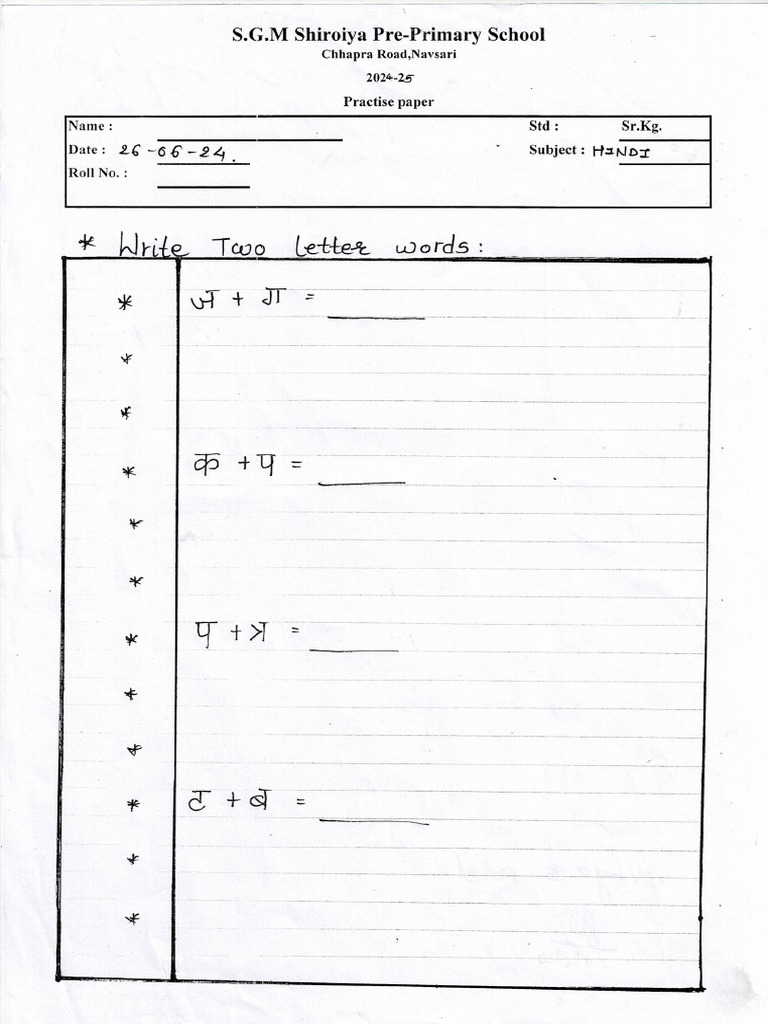 S.G.M Shiroiya Pre-Primary School
Chhapra Road,Navsari
2024-25
Practise paper
Name : Std : Sr.Kg.
Date : 26-06-24. Subject : HINDI
Roll No. :
* Write Two letter words:
* ज + ग =
*
*
* क + प =
*
*
* प + त्र =
*
*
* ट + ब =
*
*